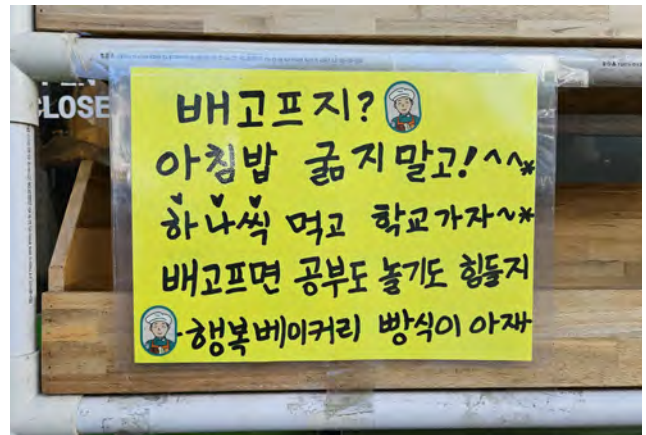 OPEN
CLOSE
배고프지?
아침밥 굶지 말고! ^^*
하나씩 먹고 학교가자~*
배고프면 공부도 놀기도 힘들지
-행복베이커리 빵식이 아재-